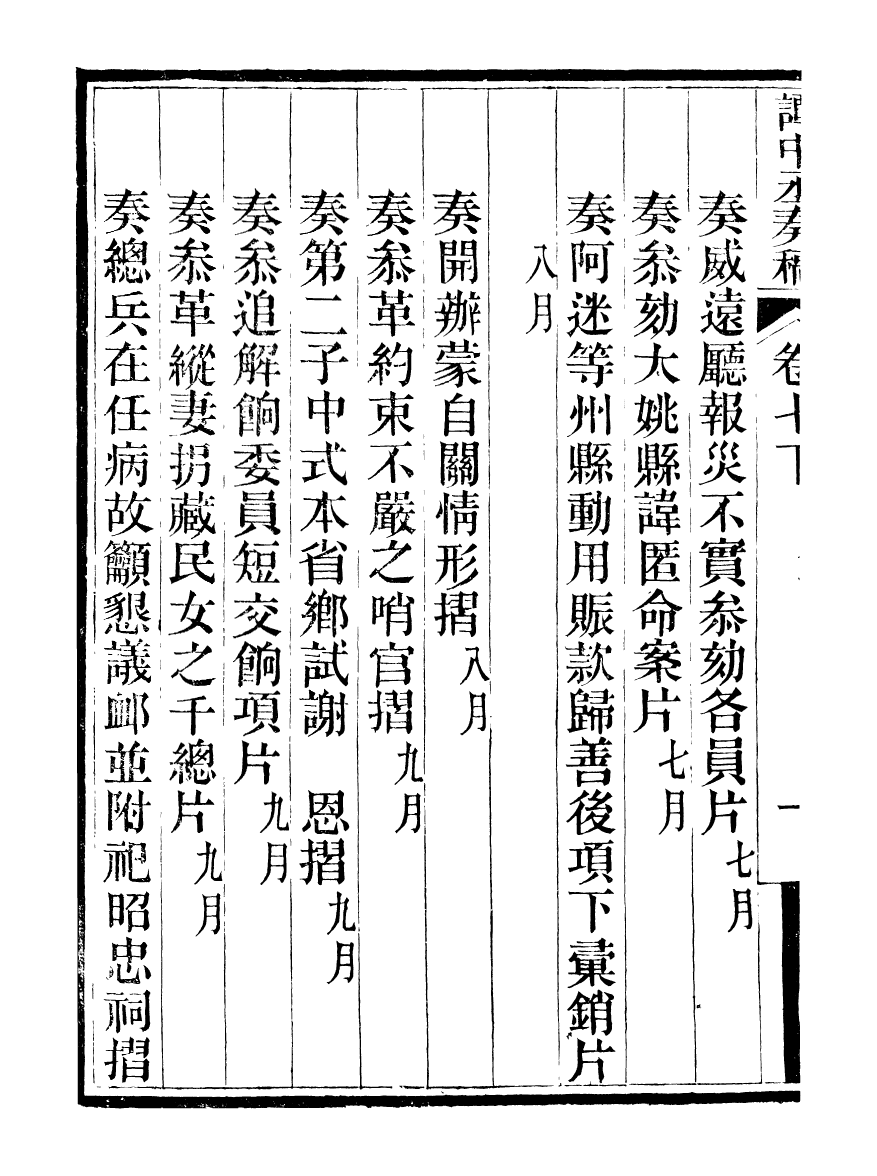 譚中丞奏稿 卷七下 一
奏威遠廳報災不實叅劾各員片七月
奏叅劾大姚縣諱匿命案片七月
奏阿迷等州縣動用賑款歸善後項下彙銷片
八月
奏開辦蒙自關情形摺八月
奏叅革約束不嚴之哨官摺九月
奏第二子中式本省鄉試謝 恩摺九月
奏叅追解餉委員短交餉項片九月
奏叅革縱妻拐藏民女之千總片九月
奏總兵在任病故籲懇議卹並附祀昭忠祠摺